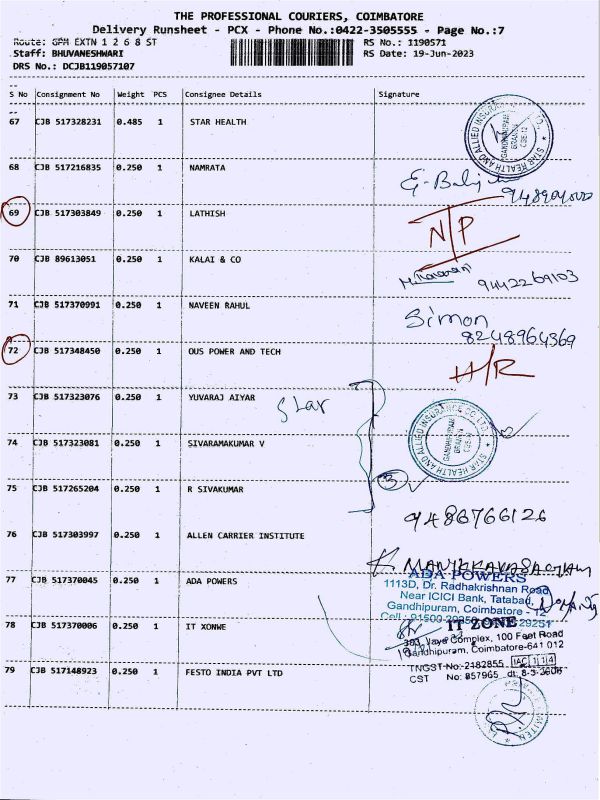 THE PROFESSIONAL COURIERS, COIMBATORE
Delivery Runsheet - PCX - Phone No.:0422-3505555 - Page No.:7
Route: GPM EXTN 1 2 6 8 ST RS No.: 1190571
Staff: BHUVANESHWARI RS Date: 19-Jun-2023
DRS No.: DCJB119057107
S No Consignment No Weight PCS Consignee Details Signature
67 CJB 517328231 0.485 1 STAR HEALTH
STAR HEALTH AND ALLIED INSURANCE CO. LTD. GANDHIPURAM BRANCH CBE-12
68 CJB 517216835 0.250 1 NAMRATA
69 CJB 517303849 0.250 1 LATHISH
N/P
70 CJB 89613051 0.250 1 KALAI & CO
9442269103
71 CJB 517370991 0.250 1 NAVEEN RAHUL
Simon
8248964369
72 CJB 517348450 0.250 1 OUS POWER AND TECH
73 CJB 517323076 0.250 1 YUVARAJ AIYAR
Star
STAR HEALTH AND ALLIED INSURANCE CO. LTD. GANDHIPURAM BRANCH
74 CJB 517323081 0.250 1 SIVARAMAKUMAR V
3
75 CJB 517265204 0.250 1 R SIVAKUMAR
9486766126
76 CJB 517303997 0.250 1 ALLEN CARRIER INSTITUTE
77 CJB 517370045 0.250 1 ADA POWERS
ADA POWERS
1113D, Dr. Radhakrishnan Road
Near ICICI Bank, Tatabad,
Gandhipuram, Coimbatore - 12
78 CJB 517370006 0.250 1 IT XONWE
IT ZONE
Jaya Complex, 100 Feet Road
Gandhipuram, Coimbatore-641 012
TNGST No:-2182855 IAC 114
CST No: 857965 dt: 8-3-2006
79 CJB 517148923 0.250 1 FESTO INDIA PVT LTD